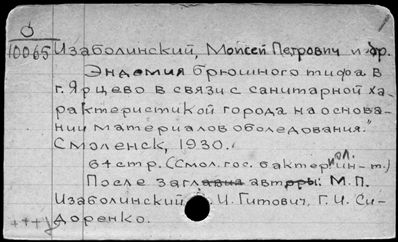 10065 Изаболинский, Моисей Петрович и др.
Эндемия брюшного тифа в
г. Ярцево в связи с санитарной ха-
рактеристикой города на основа-
нии материалов обследования."
Смоленск, 1930.
64 стр. (Смол. гос. бактериол. ин-т.)
После заглавия авторы: М.П.
Изаболинский, И. Гитович, Г.И. Си-
доренко.